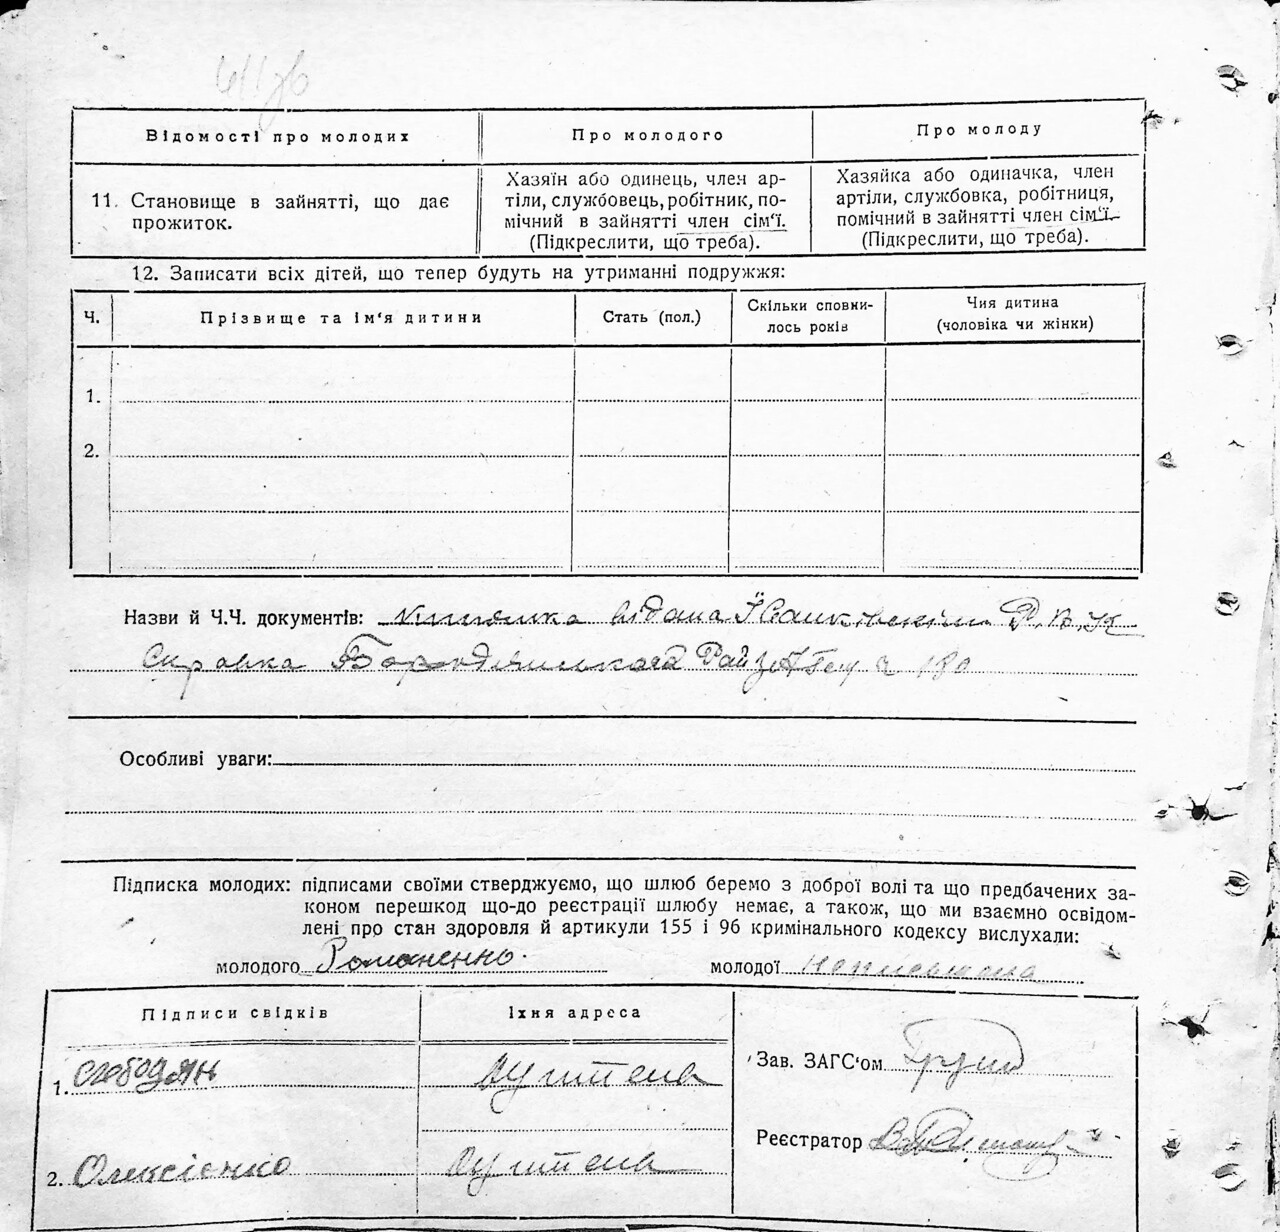 Відомості про молодих
Про молодого
Про молоду
11. Становище в зайнятті, що дає
прожиток.
Хазяїн або одинець, член ар-
тіли, службовець, робітник, по-
мічний в зайнятті член сім'ї.
(Підкреслити, що треба).
Хазяйка або одиначка, член
артіли, службовка, робітниця,
помічний в зайнятті член сім'ї.
(Підкреслити, що треба).
12. Записати всіх дітей, що тепер будуть на утриманні подружжя:
Ч.
Прізвище та ім'я дитини
Стать (пол.)
Скільки сповни-
лось років
Чия дитина
(чоловіка чи жінки)
1.
2.
Назви й Ч.Ч. документів: книжка видана Р.В.К
Справка Бородянського Рай ЗАГсу ч 180
Особливі уваги:
Підписка молодих: підписами своїми стверджуємо, що шлюб беремо з доброї волі та що предбачених за-
коном перешкод що-до реєстрації шлюбу немає, а також, що ми взаємно освідом-
лені про стан здоровля й артикули 155 і 96 кримінального кодексу вислухали:
молодого Романенко. молодої неписьмена
Підписи свідків
Їхня адреса
1. Слободян
2. Олексієнко
Зав. ЗАГС'ом
Реєстратор